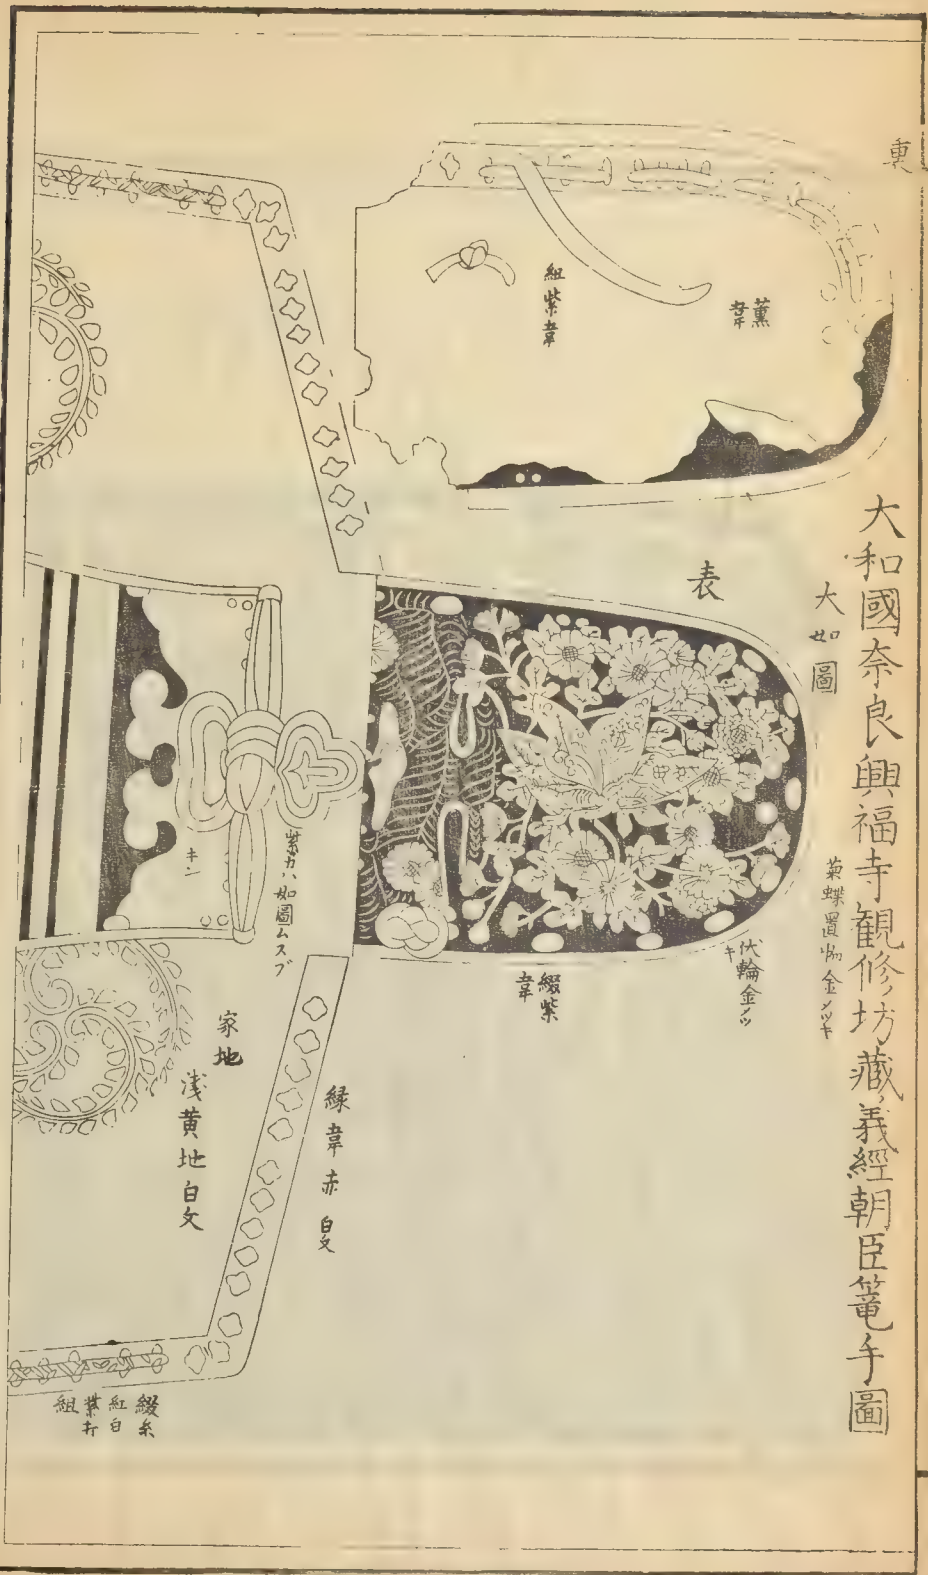 大和國奈良興福寺観修坊藏義經朝臣篭手圖
大如圖
菊蝶置物金メツキ
伏輪金メツ
キ
表
綴紫
韋
薫
韋
組紫韋
紫カハ如圖ムスブ
キン
縁韋赤白文
家地
浅黄地白文
綴糸
紅白
紫打
組